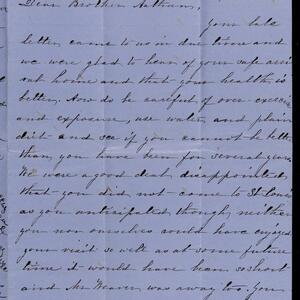 Dear Brother Nathan,
Your late
letter came to us in due time and
we were glad to hear of your safe arri
val home and that your health is
better, Now do be careful of over exercise
and exposure, use water, and plain
diet and see if you cannot be better
than you have been for several years.
We were a good deal disappointed
that you did not come to St Louis
as you anticipated, though neither
you nor ourselves could have enjoyed
your visit so well as at some future
time it would have been so short
and Mr Weaver was away too. You